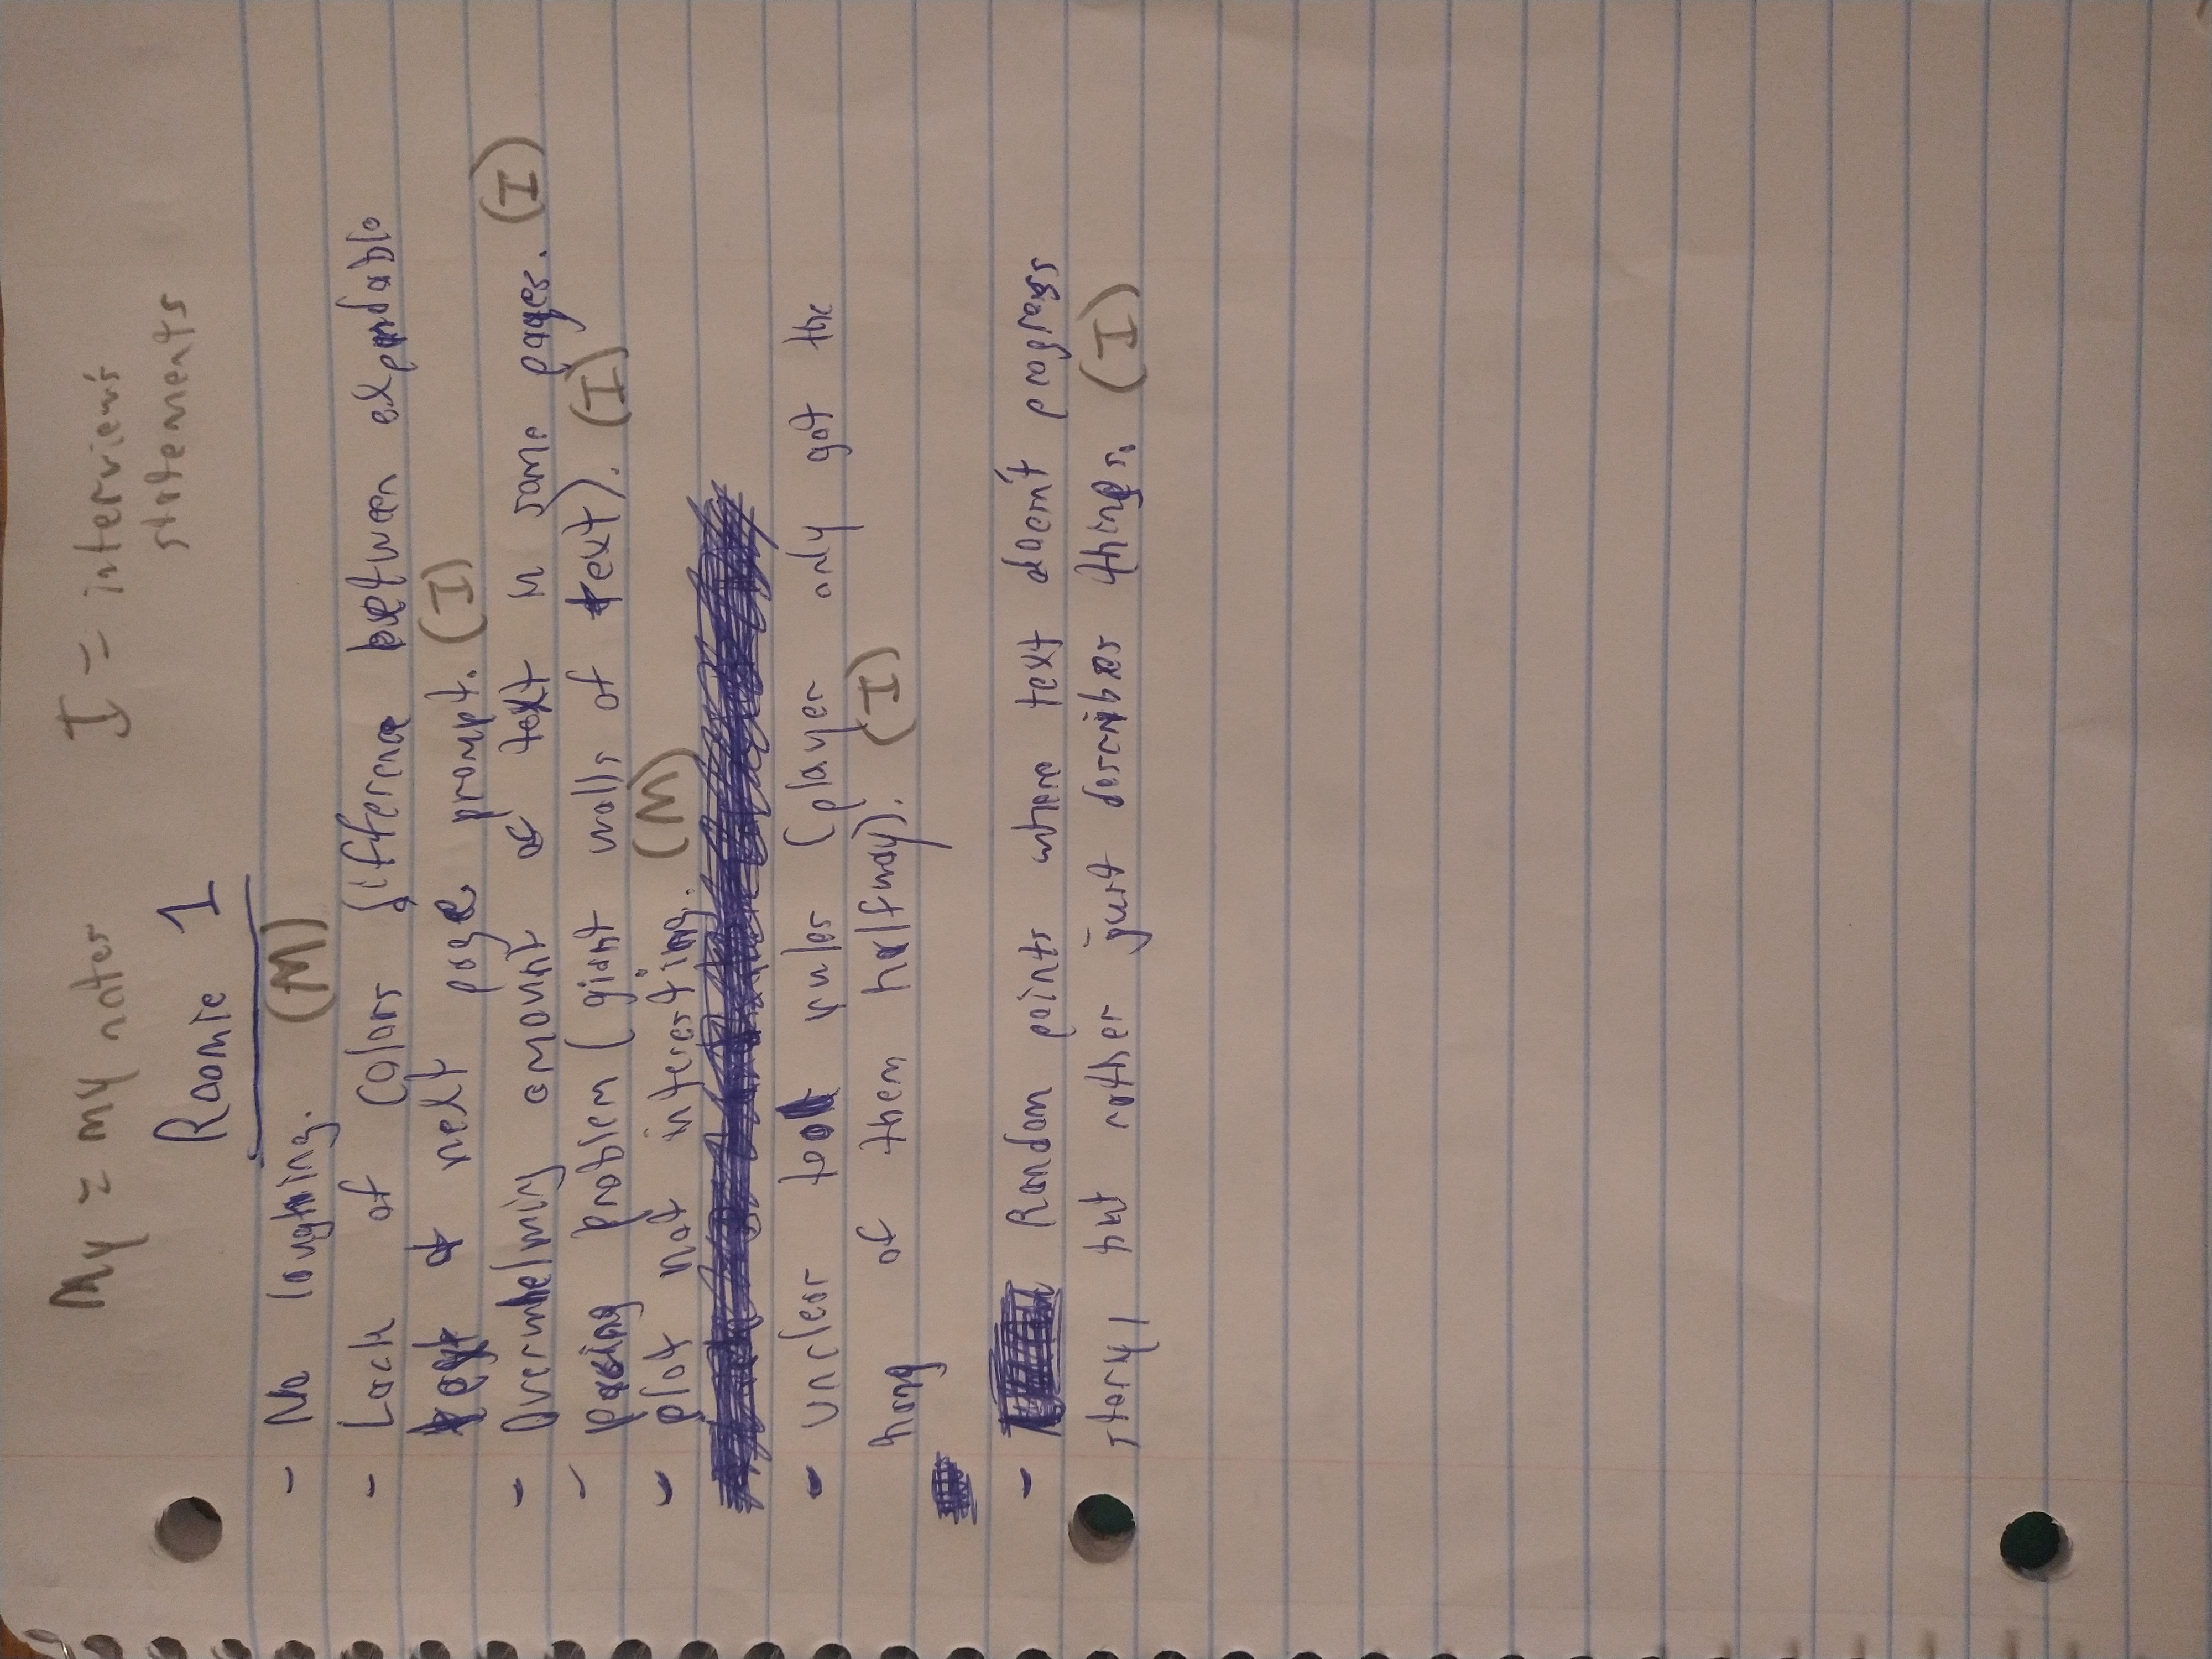 My = my notes I = interview's
statements
Roomie 1
- No laughing. (M)
- Lack of colors difference between expandable
text & next page prompt. (I)
- Overwhelming amount of text in some pages. (I)
- pacing problem (giant walls of text). (I)
- plot not interesting. (M)
- unclear tool rules (player only got the
hang of them halfway). (I)
- Random points where text doesn't progress
story, but rather just describes things. (I)